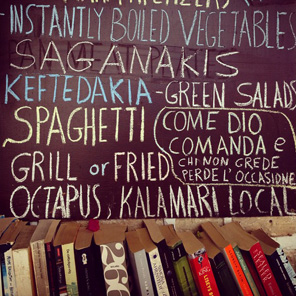 -INSTANTLY BOILED VEGETABLES
SAGANAKIS
KEFTEDAKIA -GREEN SALADS
SPAGHETTI
COME DIO
COMANDA e
CHI NON CREDE
PERDE L'OCCASIONE
GRILL or FRIED
OCTAPUS, KALAMARI LOCAL
2666
KING